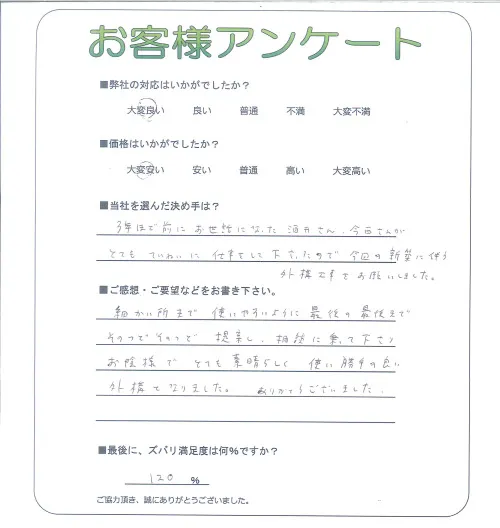 お客様アンケート
■弊社の対応はいかがでしたか？
大変良い 良い 普通 不満 大変不満
■価格はいかがでしたか？
大変安い 安い 普通 高い 大変高い
■当社を選んだ決め手は？
3年ほど前に お世話になった 酒井さん、今西さんが
とても ていねいに 仕事をして下さったので 今回の新築に伴う
外構工事をお願いしました。
■ご感想・ご要望などをお書き下さい。
細かい所まで 使いやすいように 最後の最後まで
そのつどそのつど 提案し、相談に乗って下さり
お陰様で とても素晴らしく 使い勝手の良い
外構となりました。 ありがとうございました。
■最後に、ズバリ満足度は何％ですか？
120 %
ご協力頂き、誠にありがとうございました。